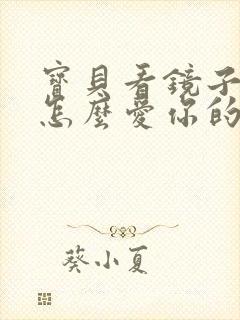 寶貝看鏡子
怎麼愛你的
葵小夏